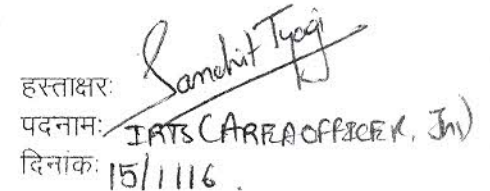 हस्ताक्षरः Sanchit Tyagi
पदनामः IRTS (AREA OFFICER, Jhs)
दिनांकः 15/1/16.